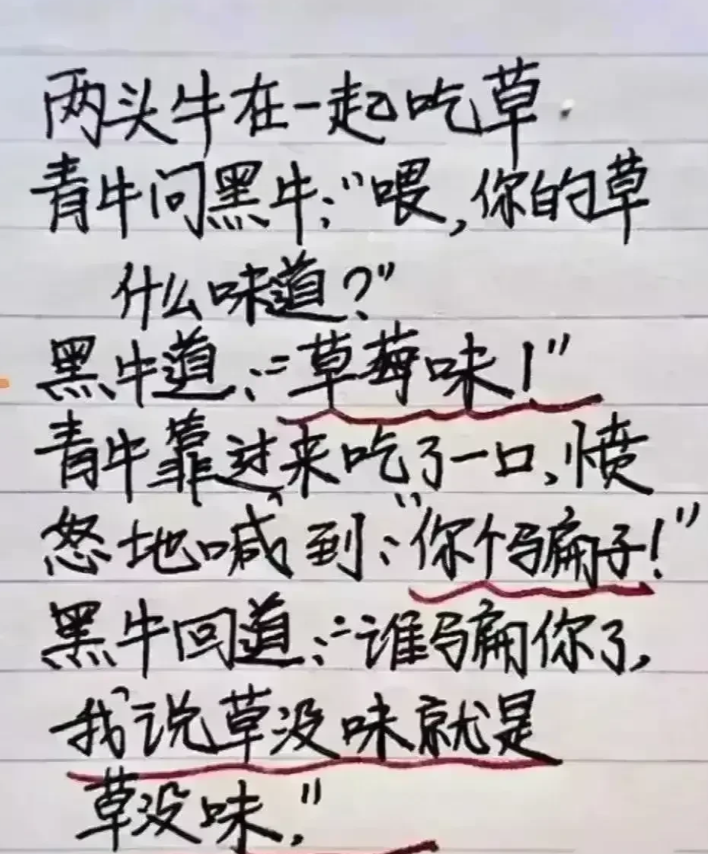 两头牛在一起吃草.
青牛问黑牛:"喂,你的草
什么味道?"
黑牛道:"草莓味!"
青牛靠过来吃了一口,愤
怒地喊到:"你个骗子!"
黑牛回道:"谁骗你了,
我说草没味就是
草没味,"